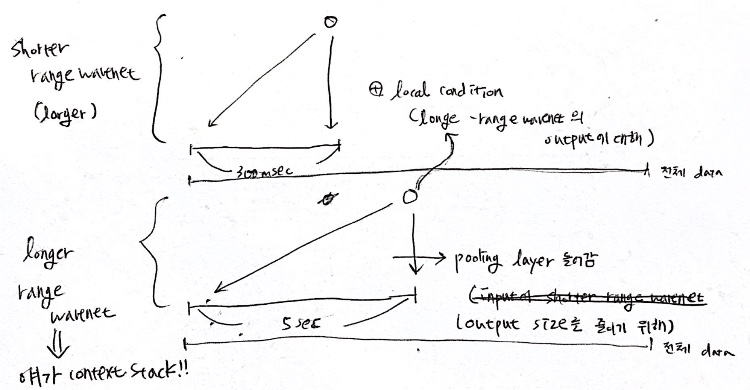 shorter
range wavenet
(larger)
300msec
⊕ local condition
(longe-range wavenet의
output에 대해)
전체 data
longer
range
wavenet
⇓
얘가 context stack!!
5 sec
pooling layer 들어감
(input of shorter range wavenet
(output size를 줄이기 위해)
전체 data